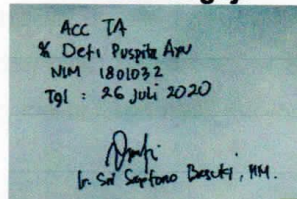 Acc TA
% Defi Puspita Ayu
NIM 1801032
Tgl : 26 Juli 2020
Ir. Sri Saptono Basuki, MM.